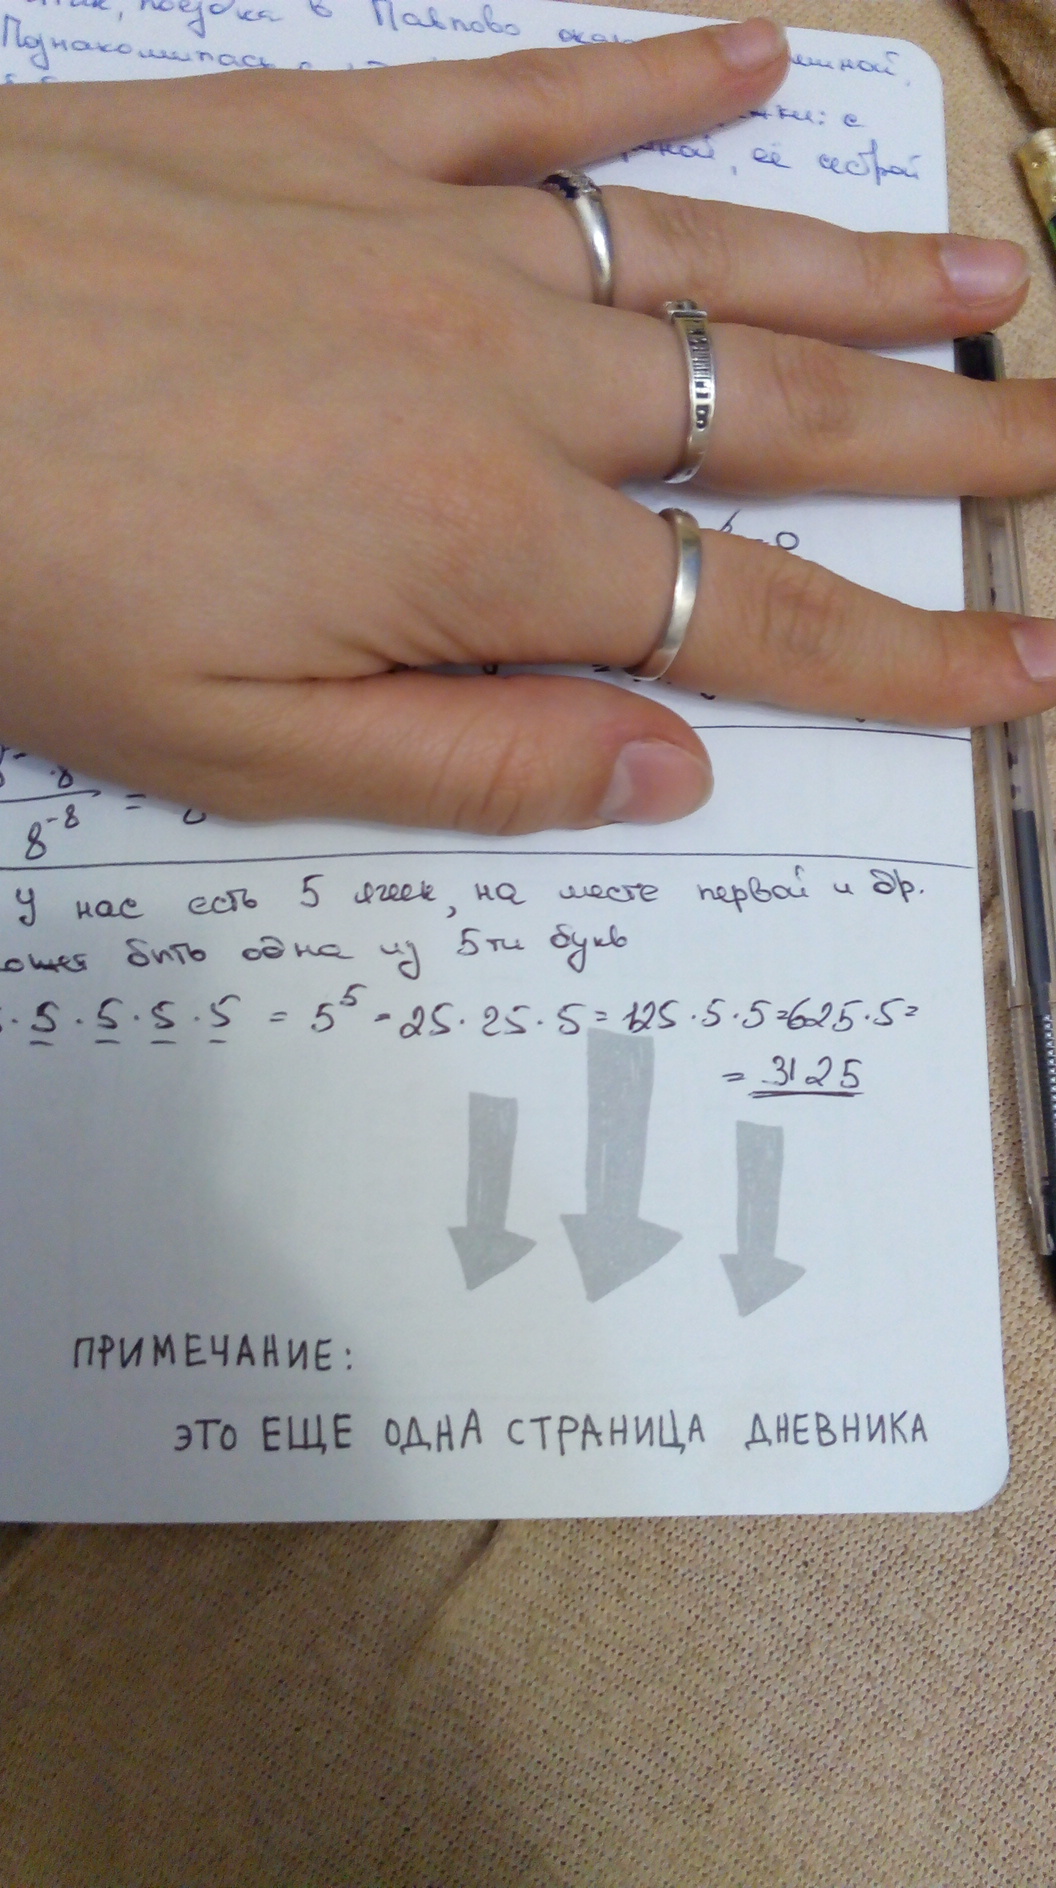 поездка в Павлово
Познакомилась
с
, её сестрой
0
8
8⁻⁸ =
У нас есть 5 ячеек, на месте первой и др.
быть одна из 5ти букв
· 5 · 5 · 5 · 5 = 5⁵ = 25 · 25 · 5 = 125 · 5 · 5 = 625 · 5 =
= 3125
ПРИМЕЧАНИЕ:
ЭТО ЕЩЕ ОДНА СТРАНИЦА ДНЕВНИКА